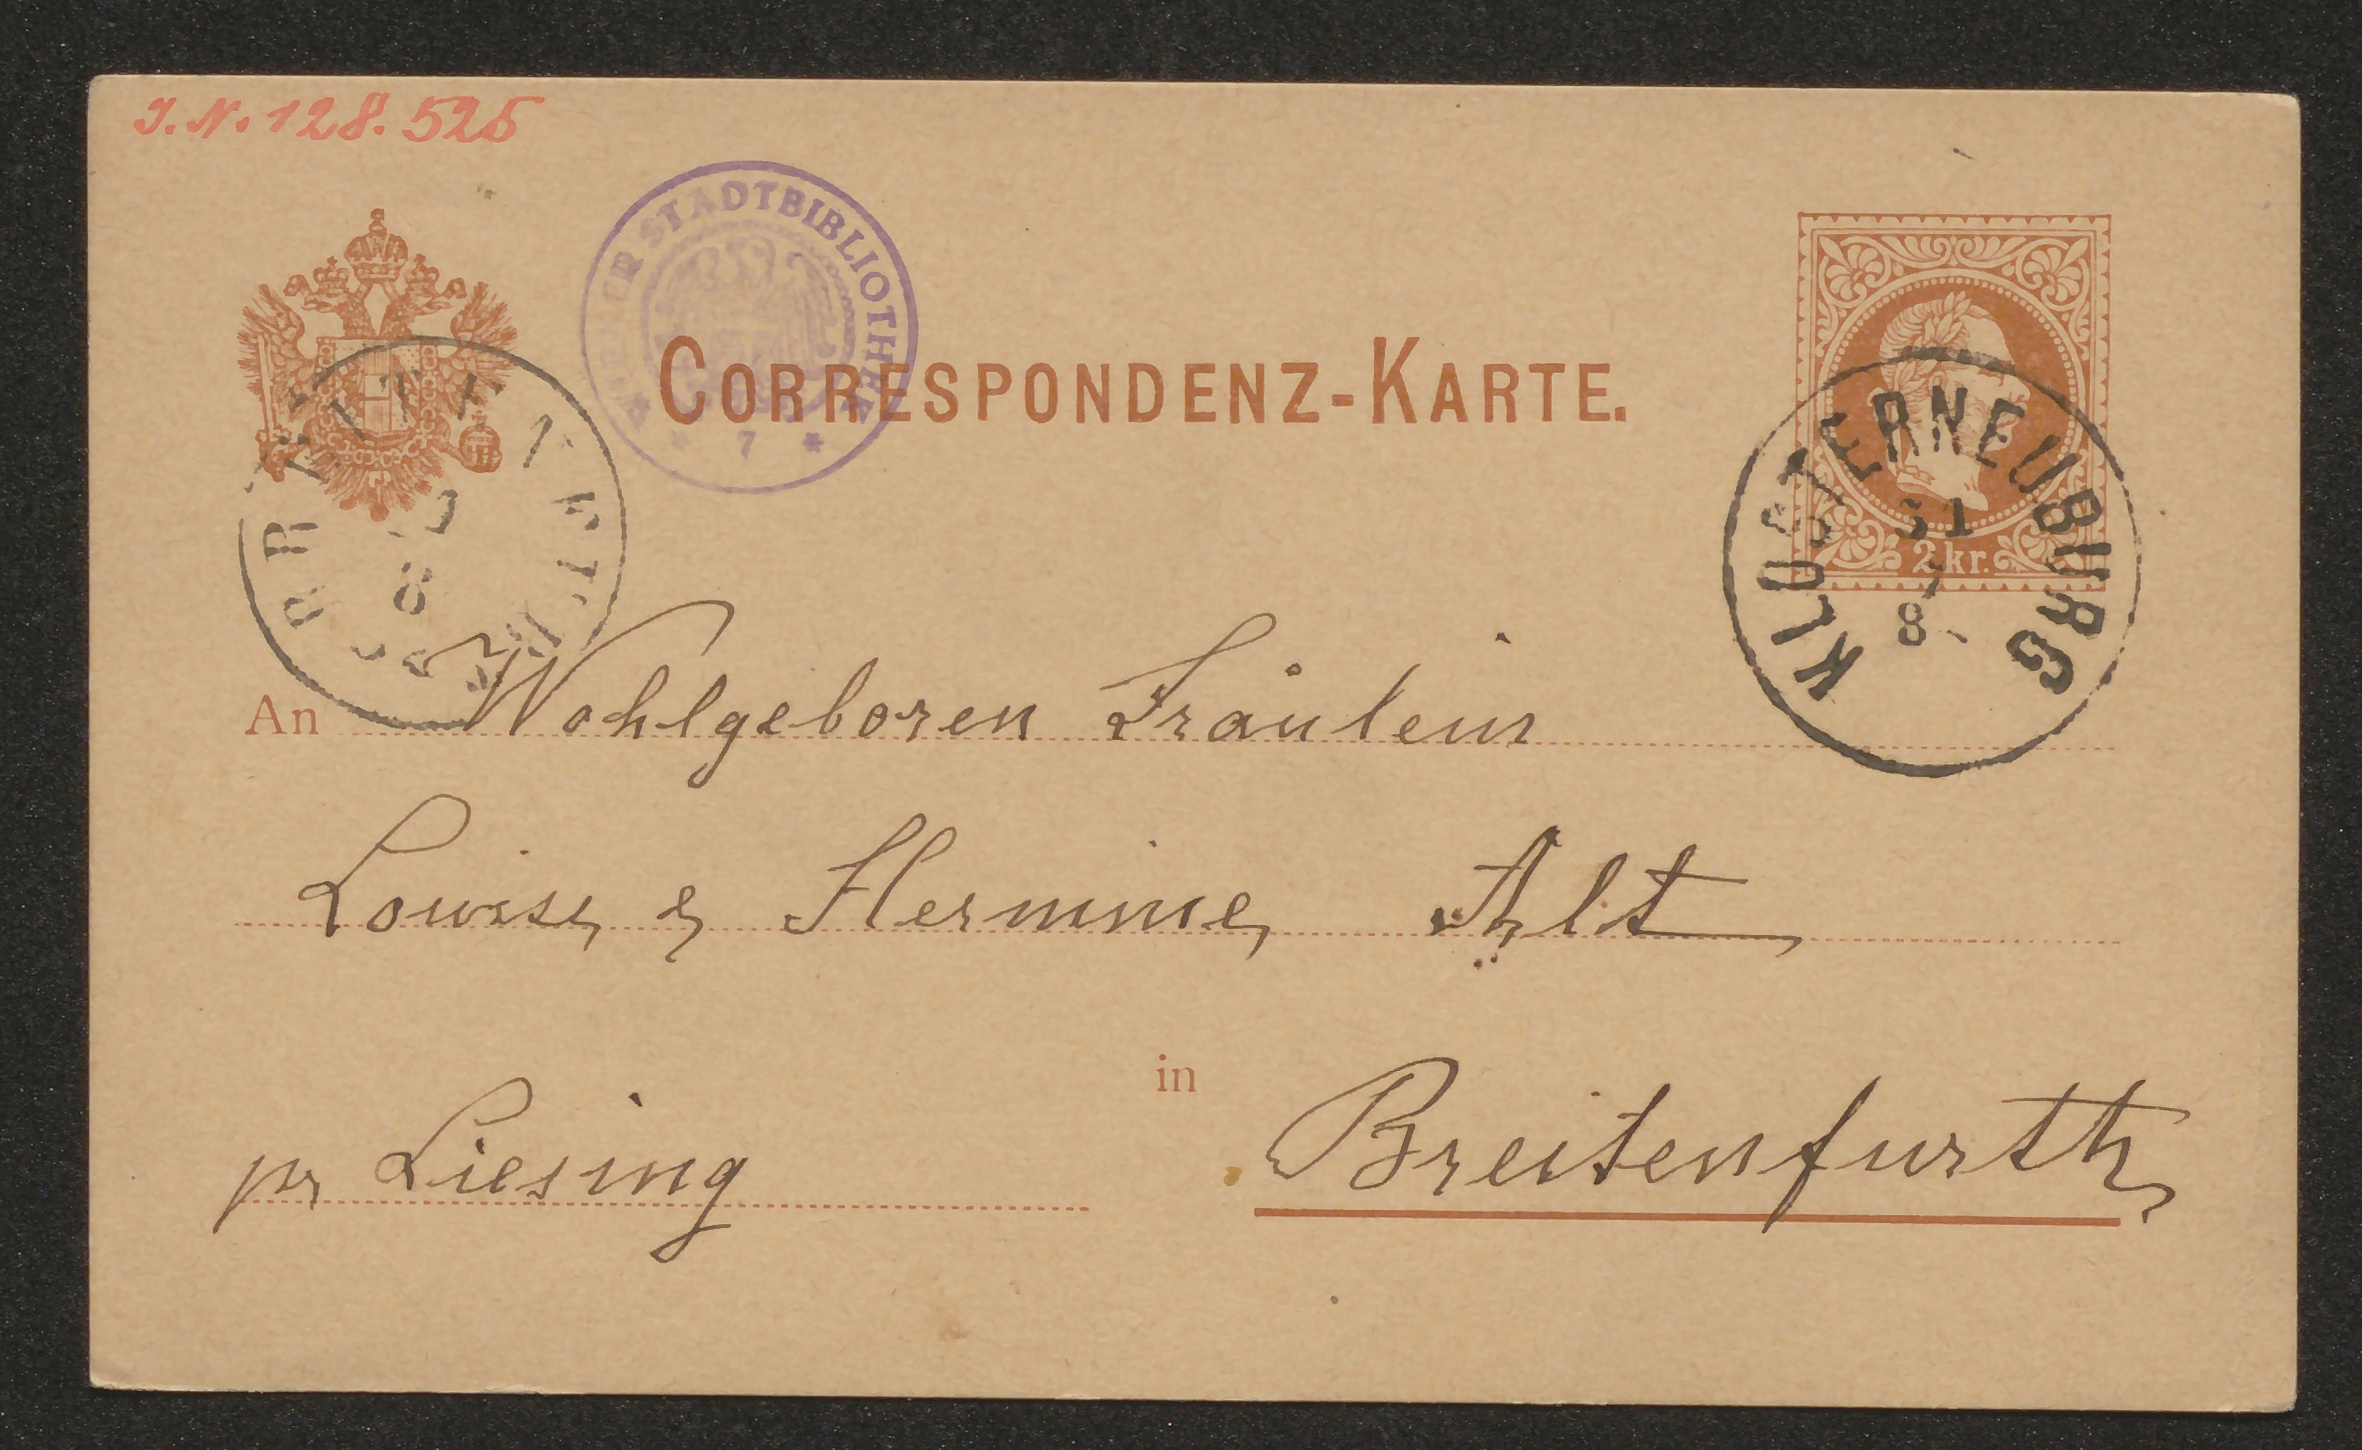 J. N. 128.525
WIENER STADTBIBLIOTHEK
* 7 *
CORRESPONDENZ-KARTE.
2 kr.
KLOSTERNEUBURG
31
7
8
An Wohlgeboren Fräulein
Louise & Hermine Alt
in
pr Liesing Breitenfurth